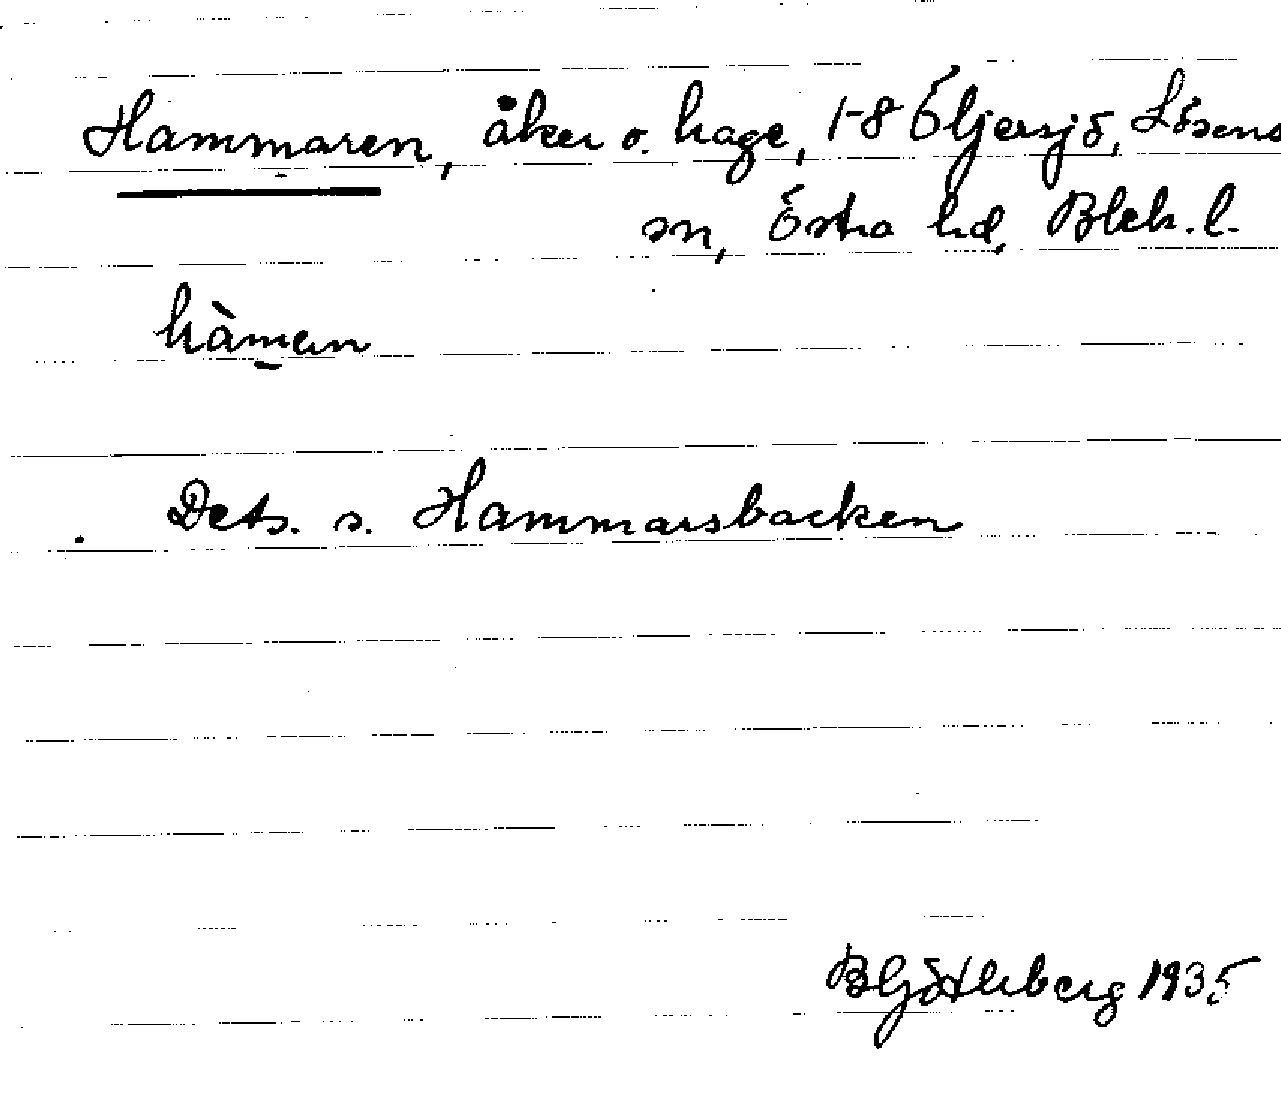 Hammaren, åker o. hage, 1-8 Öljersjö, Lösens
sn, Östra hd, Blek. l.
hàman
Dets. s. Hammarsbacken
1935